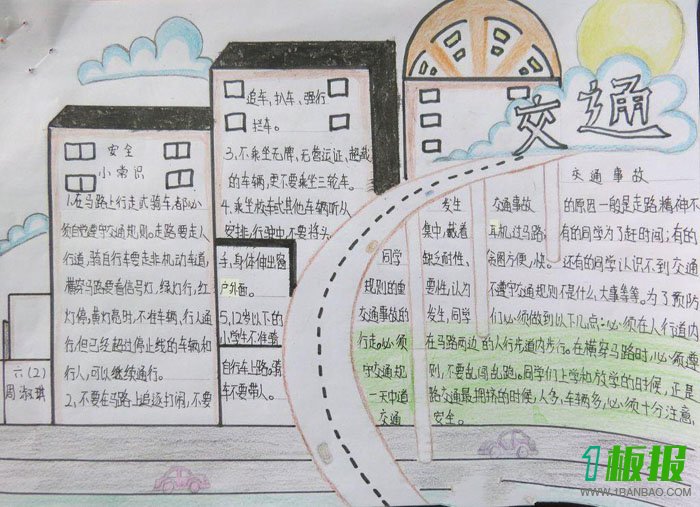 交通
安全
小常识
1.在马路上行走或骑车,都必
须自觉遵守交通规则。走路要走人
行道,骑自行车要走非机动车道,
横穿马路要看信号灯,绿灯行,红
灯停,黄灯亮时,不准车辆、行人通
行,但已经超过停止线的车辆和
行人,可以继续通行。
2、不要在马路上追逐打闹,不要
追车,扒车、强行
拦车。
3、不乘坐无牌、无营运证、超载
的车辆,更不要乘坐三轮车。
4、乘坐校车或其他车辆听从
安排,行驶中不要将头
手、身体伸出窗
户外面。
5、12岁以下的
小学生不准骑
自行车上路。骑
车不要带人。
交通事故
发生 交通事故 的原因一般是走路精神不
集中,戴着 耳机过马路; 有的同学为了赶时间;有的
同学 缺乏耐性、 贪图方便,快。 还有的同学认识不到交通
规则的重 要性,认为 不遵守交通规则不是什么大事等等。为了预防
交通事故的 发生,同学 们必须做到以下几点:必须在人行道内
行走。必须 在马路两边的人行充道内步行。在横穿马路时,必须遵
守交通规 则,不要乱闯乱跑。同学们上学和放学的时候,正是
一天中道 路交通最拥挤的时候,人多,车辆多,必须十分注意
交通 安全。
六(2)
周淑琪
1板报
WWW.1BANBAO.COM